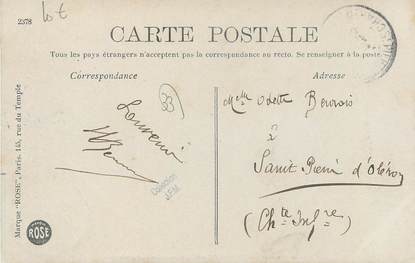 2378
lot
CARTE POSTALE
Tous les pays étrangers n'acceptent pas la correspondance au recto. Se renseigner à la poste
Correspondance
Adresse
33
Souvenir
Melle Odette
à
Saint Pierre d'Oléron
(Chte Infre)
Collection
JFM
Marque "ROSE", Paris. 145, rue du Temple
ROSE